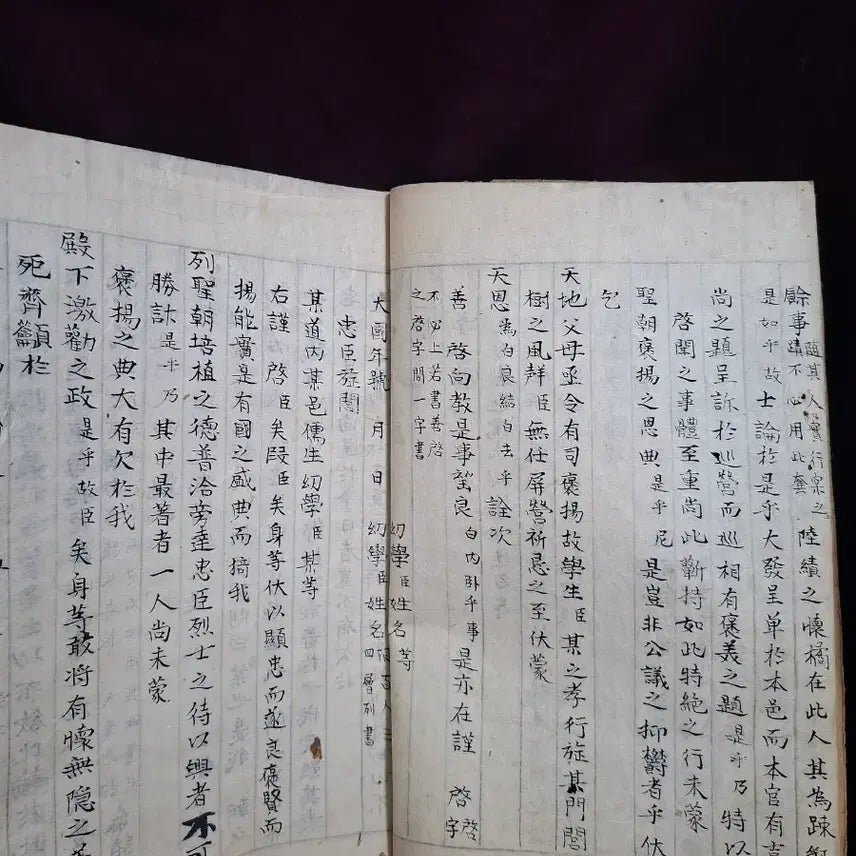 餘事隨其人實行宗之蹟不必用此套陸績之懷橘在此人其為疎
是如乎故士論於是乎大發呈单於本邑而本官有
尚之題呈訴於巡營而巡相有褒美之題是乎乃特以
啓聞之事體至重尚此靳持如此特絶之行未蒙
聖朝褒揚之恩典是乎尼是豈非公議之抑欝者乎伏
乞
天地父母亟令有司褒揚故學生臣某之孝行旌某門閭
樹之風聲臣無任屏營祈恳之至伏蒙
天恩為白良結白去乎詮次
善啓向教是事望良白內卧乎事是亦在謹啓
不必上若書善啓
之啓字間一字書
啓字
幼學臣姓名等
大國年號月日幼學臣姓名四層列書
忠臣旌閭
某道內某邑儒生幼學臣某等
右謹啓臣矣段臣矣身等伏以顯忠而遂良褒賢而
揚能實是有國之盛典而猗我
列聖朝培植之德普洽旁達忠臣烈士之待以興者不可
勝計是乎乃其中最著者一人尚未蒙
褒揚之典大有欠於我
殿下激勸之政是乎故臣矣身等敢將有懷無隐之
死齊籲於